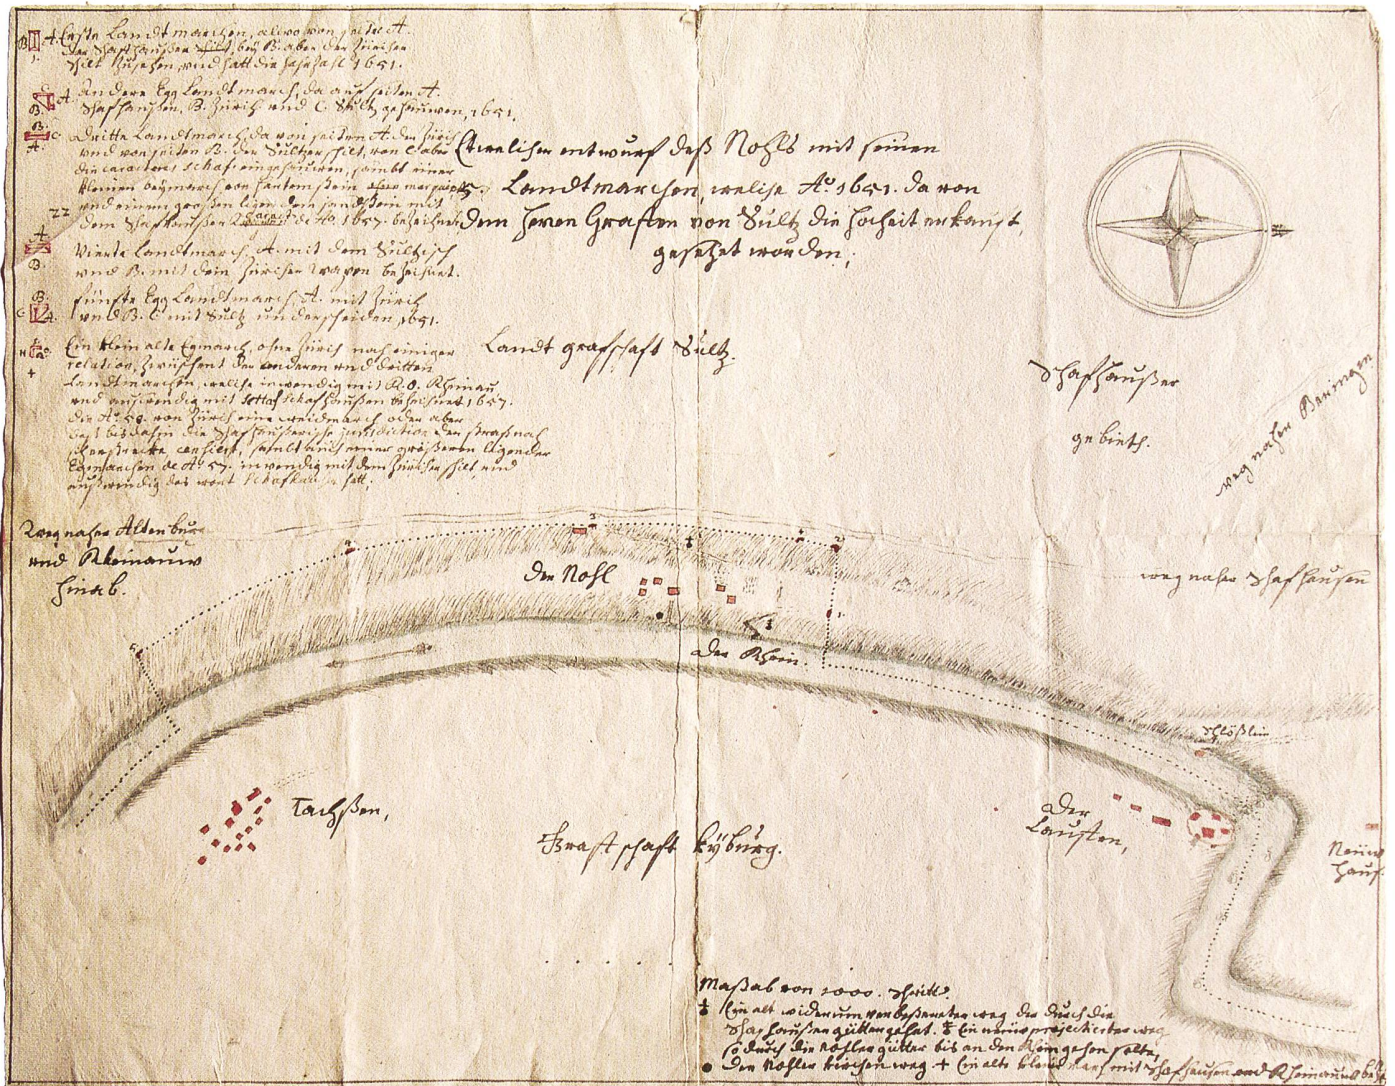 A. Erste Landtmarchen, alwo von seiten A.
der Schafhaußer schilt, bey B. aber der Züricher
schilt zusehen, und hatt die Jahrzahl 1651.
Andere Egg Landtmarch, da auf seiten A.
Schafhausen, B. Zürich und C. Sultz gehauwen, 1651.
Dritte Landtmarch, da von seiten A. der Zürich
und von seiten B. der Sultzer schilt, von C aber
die caracteres Schaf. eingehauwen, sambt einer
kleinen beymarch von hartem stein
und einem großen ligenden sandstein mit
dem Schafhaußer de Ao. 1657. bezeichnet
Vierte Landtmarch, A. mit dem Sultzisch
und B. mit dem Züricher Wapen bezeichnet.
fünfte Egg Landtmarch, A. mit Zürich
und B. C. mit Sultz underscheiden, 1651.
Ein klein alte Egmarch, ohne Zürich nach einiger
relation, zwüschent der anderen und dritten
Landtmarchen, welche inwendig mit R. O. Rheinau
und auswendig mit Schafhaußen bezeichnet 1657.
die Ao. 59. von Zürich eine weidmarch oder aber
bis dahin die Schafhaußerische jurisdiction der straß nach
sich erstrecke, sambt auch einer größeren ligender
Egmarchen de Ao. 57. inwendig mit dem Züricher schilt, und
außwendig das wort Schafhausen hatt.
Etwelicher entwurf deß Nohls mit seinen
5. Landtmarchen, weliche Ao. 1651. da von
den Herren Graffen von Sultz die hocheit erkauft,
gesetzet worden;
Landt grafschaft Sultz.
Schafhaußer
gebieth.
weg naher Beringen
Weg naher Altenburg
und Rheinauw
hinab.
Der Nohl
weg naher Schafhausen
Der Rhein.
Schlößlin
Tachßen,
Grafschaft Kÿburg.
Der
Lauffen,
Neüw
hauß
Maßab von 1000. schritt.
Ein alt widerum verbeßereter weg der durch die
Schafhaußer gütter gehet. Ein neüw projectierter weg
so durch die Nohler gütter bis an den Rhein gehen solte,
Der Nohler kirchenweg + Ein alte kleine march mit Schafhausen und Rheinauw